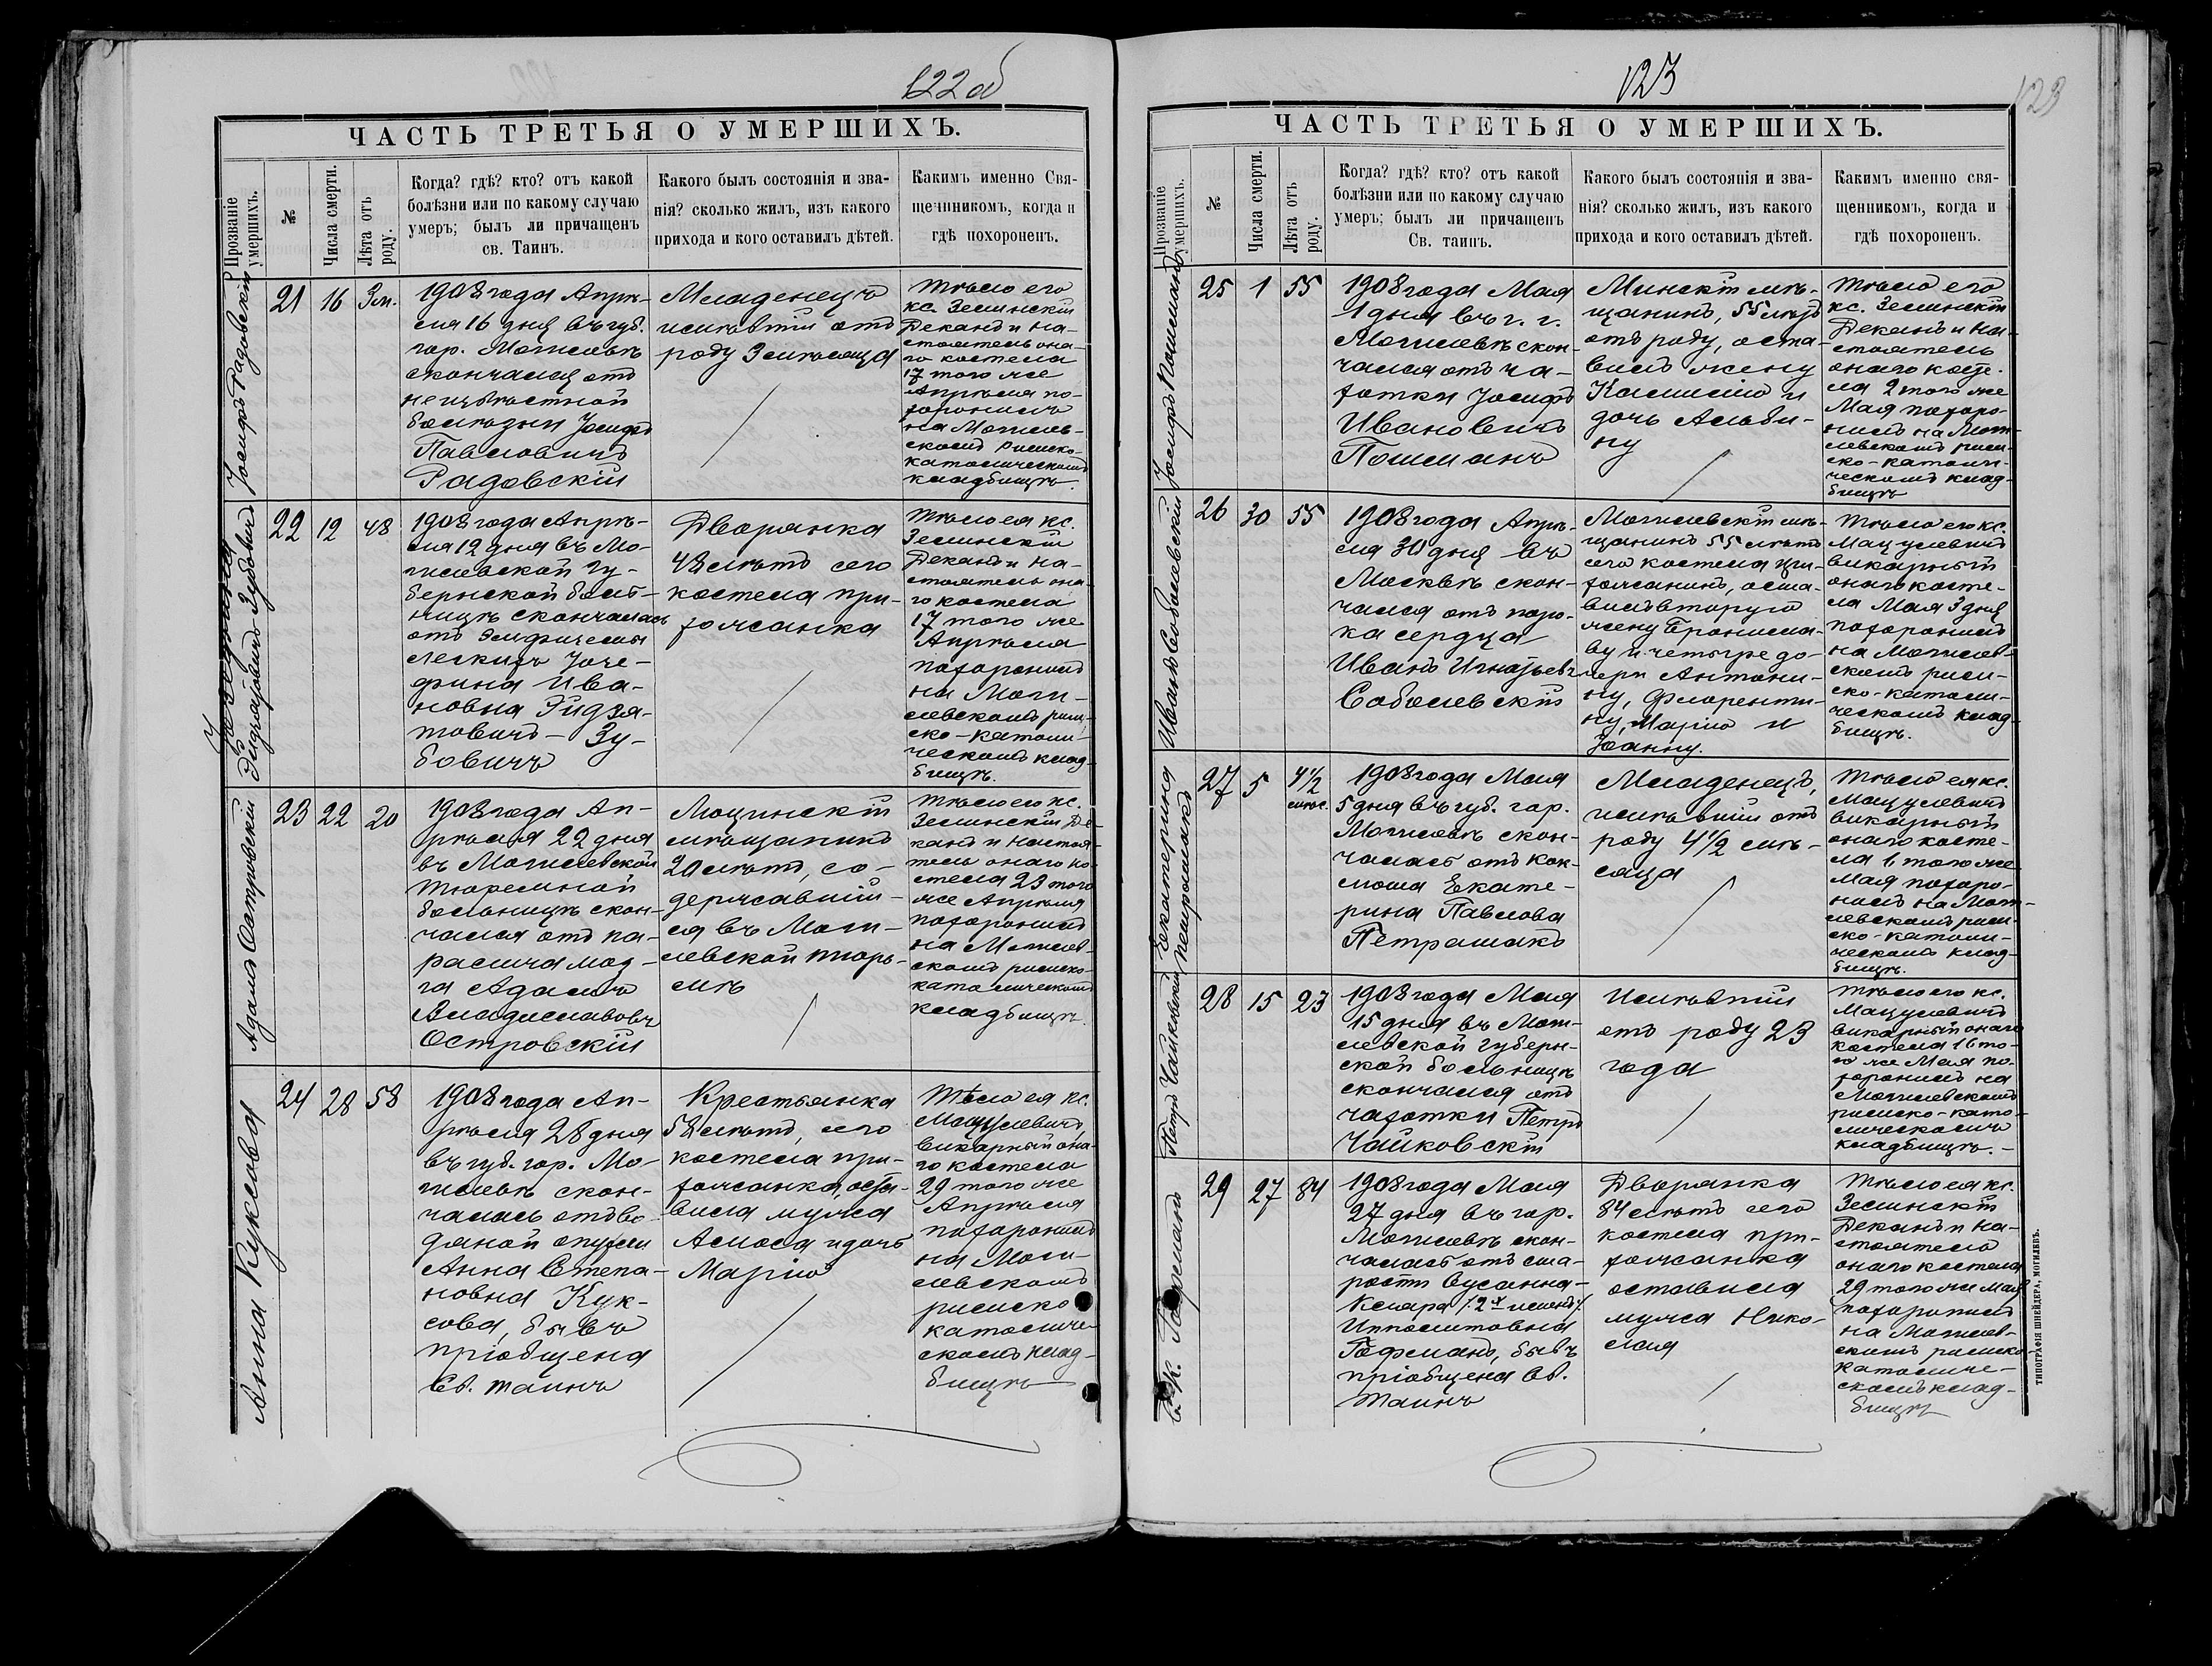 122об
ЧАСТЬ ТРЕТЬЯ О УМЕРШИХЪ.
Прозваніе умершихъ.
№
Числа смерти.
Лѣта отъ роду.
Когда? гдѣ? кто? отъ какой
болѣзни или по какому случаю
умеръ; былъ ли причащенъ
св. Таинъ.
Какого былъ состоянія и зва-
нія? сколько жилъ, изъ какого
прихода и кого оставилъ дѣтей.
Какимъ именно Свя-
щенникомъ, когда и
гдѣ похороненъ.
Іосифъ Радовскій
21
16
3 м.
1908 года Апрѣ-
ля 16 дня въ губ.
гор. Могилевѣ
скончался отъ
неизвѣстной
болѣзни Іосифъ
Павловичъ
Радовскій
Младенецъ
имѣвшій отъ
роду 3 мѣсяца
Тѣло его
кс. Землинскій
Деканъ и На-
стоятель она-
го костела
17 того же
Апрѣля по-
хоронилъ
на Могилев-
скомъ римско-
католическомъ
кладбищѣ.
Іозефина
Эйдзятовичъ-Зубовичъ
22
12
48
1908 года Апрѣ-
ля 12 дня въ Мо-
гилевской Гу-
бернской боль-
ницѣ скончалась
отъ эмфиземы
легкихъ Іозе-
фина Ива-
новна Эйдзя-
товичъ-Зу-
бовичъ
Дворянка
48 лѣтъ сего
костела при-
хожанка
Тѣло ея кс.
Землинскій
Деканъ и На-
стоятель она-
го костела
17 того же
Апрѣля
похоронилъ
на Моги-
левскомъ рим-
ско-католи-
ческомъ клад-
бищѣ.
Адамъ Островскій
23
22
20
1908 года Ап-
рѣля 22 дня
въ Могилевской
Тюремной
больницѣ скон-
чался отъ па-
ралича моз-
га Адамъ
Владиславовъ
Островскій
мѣщанинъ
20 лѣтъ, со-
державшій-
ся въ Моги-
левской тюрь-
мѣ
Тѣло его кс.
Землинскій Де-
канъ и Настоя-
тель онаго ко-
стела 23 того
же Апрѣля
похоронилъ
на Могилев-
скомъ римско-
католическомъ
кладбищѣ.
Анна Куксова
24
28
58
1908 года Ап-
рѣля 28 дня
въ губ. гор. Мо-
гилевѣ скон-
чалась отъ во-
дяной опухоли
Анна Степа-
новна Кук-
сова, бывъ
пріобщена
Св. таинъ
Крестьянка
58 лѣтъ, сего
костела при-
хожанка, оста-
вила мужа
Амоса и дочь
Марію
Тѣло ея кс.
Мацулевичъ
викарный она-
го костела
29 того же
Апрѣля
похоронилъ
на Моги-
левскомъ
римско
католиче-
скомъ клад-
бищѣ
123
123
ЧАСТЬ ТРЕТЬЯ О УМЕРШИХЪ.
Прозваніе умершихъ.
№
Числа смерти.
Лѣта отъ роду.
Когда? гдѣ? кто? отъ какой
болѣзни или по какому случаю
умеръ; былъ ли причащенъ
Св. таинъ.
Какого былъ состоянія и зва-
нія? сколько жилъ, изъ какого
прихода и кого оставилъ дѣтей.
Какимъ именно свя-
щенникомъ, когда и
гдѣ похороненъ.
Іосифъ Пошманъ
25
1
55
1908 года Мая
1 дня въ г. г.
Могилевѣ скон-
чался отъ ча-
хотки Іосифъ
Ивановичъ
Пошманъ
Минскій мѣ-
щанинъ, 55 лѣтъ
отъ роду, оста-
вилъ жену
и
дочь Альби-
ну
Тѣло его
кс. Землинскій
Деканъ и На-
стоятель
онаго косте-
ла 2 того же
Мая похоро-
нилъ на Моги-
левскомъ рим-
ско-католи-
ческомъ клад-
бищѣ
Иванъ Соболевскій
26
30
55
1908 года Апрѣ-
ля 30 дня въ
Москвѣ скон-
чался отъ поро-
ка сердца
Иванъ Игнатьевъ
Соболевскій
Могилевскій мѣ-
щанинъ 55 лѣтъ
сего костела при-
хожанинъ, оста-
вилъ вторую
жену Бронисла-
ву и четыре до-
чери Антони-
ну, Флоренти-
ну, Марію и
Іоанну.
Тѣло его кс.
Мацулевичъ
викарный
онаго косте-
ла Мая 3 дня
похоронилъ
на Могилев-
скомъ рим-
ско-католи-
ческомъ клад-
бищѣ.
Екатерина
Петрашакъ
27
5
4½
мѣс.
1908 года Мая
5 дня въ губ. гор.
Могилевѣ скон-
чалась отъ кок-
люша Екате-
рина Павлова
Петрашакъ
Младенецъ,
имѣвшій отъ
роду 4½ мѣ-
сяца
Тѣло ея кс.
Мацулевичъ
викарный
онаго косте-
ла 6 того же
Мая похоро-
нилъ на Моги-
левскомъ рим-
ско-католи-
ческомъ клад-
бищѣ.
Петръ Чайковскій
28
15
23
1908 года Мая
15 дня въ Моги-
левской Губерн-
ской больницѣ
скончался отъ
чахотки Петръ
Чайковскій
Имѣвшій
отъ роду 23
года
Тѣло его кс.
Мацулевичъ
викарный онаго
костела 16 то-
го же Мая по-
хоронилъ на
Могилевскомъ
римско-като-
лическомъ
кладбищѣ.
К. Гофманъ
29
27
84
1908 года Мая
27 дня въ гор.
Могилевѣ скон-
чалась отъ ста-
рости Сусанна-
Клара /2х именъ/
Ипполитовна
Гофманъ, бывъ
пріобщена Св.
Таинъ
Дворянка
84 лѣтъ сего
костела при-
хожанка
оставила
мужа Нико-
лая
Тѣло ея кс.
Землинскій
Деканъ и На-
стоятель
онаго костела
29 того же Мая
похоронилъ
на Могилев-
скомъ римско-
католиче-
скомъ клад-
бищѣ
ТИПОГРАФІЯ ШНЕЙДЕРА, МОГИЛЕВЪ.